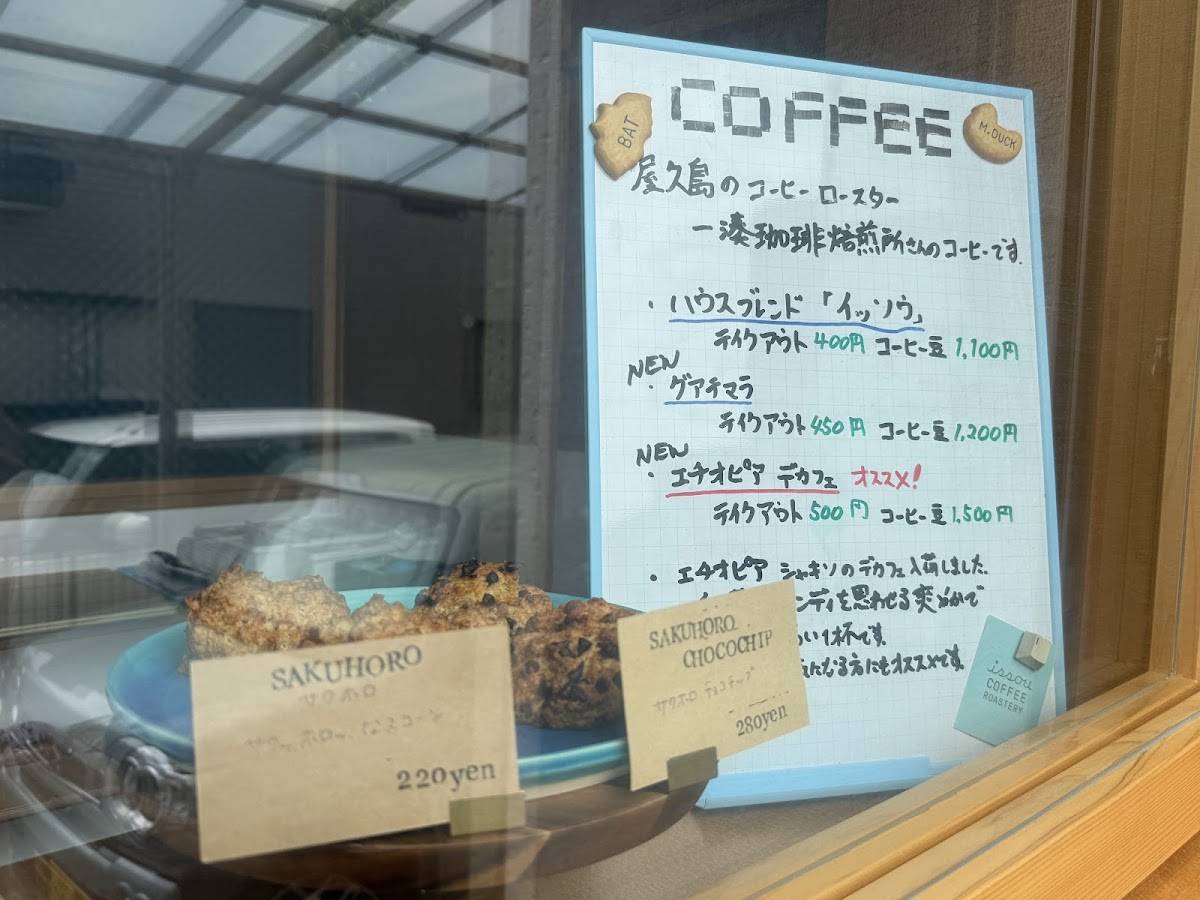 COFFEE
BAT
M.DUCK
屋久島のコーヒーロースター
一湊珈琲焙煎所さんのコーヒーです.
・ハウスブレンド「イッソウ」
テイクアウト 400円 コーヒー豆 1,100円
NEW
・グアテマラ
テイクアウト 450円 コーヒー豆 1,200円
NEW
・エチオピア デカフェ オススメ!
テイクアウト 500円 コーヒー豆 1,500円
・エチオピア シャキソのデカフェ入荷しました.
ンディを思わせる爽やかで
い1杯です.
になる方にもオススメです.
issou
COFFEE
ROASTERY
SAKUHORO
サクホロ
サクッ、ホロッ、なスコーン
220yen
SAKUHORO
CHOCOCHIP
サクホロ チョコチップ
280yen